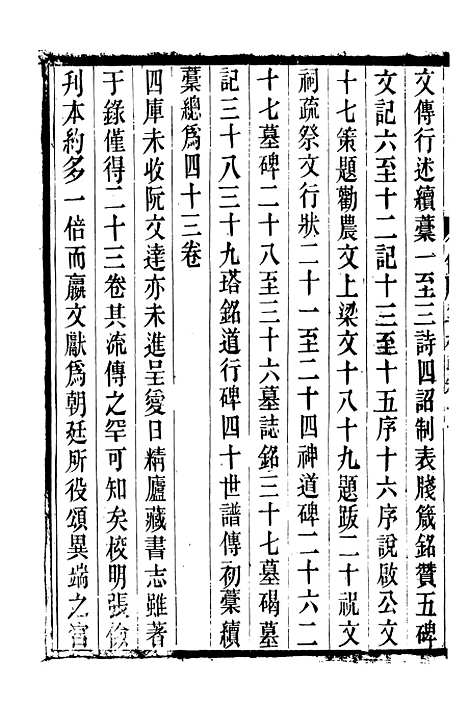 文傳行述續藁一至三詩四詔制表牋箴銘贊五碑
文記六至十二記十三至十五序十六序說啟公文
十七策題勸農文上梁文十八十九題跋二十祝文
祠疏祭文行狀二十一至二十四神道碑二十六二
十七墓碑二十八至三十六墓誌銘三十七墓碣墓
記三十八三十九塔銘道行碑四十世譜傳初藁續
藁總爲四十三卷
四庫未收阮文達亦未進呈愛日精廬藏書志雖著
于錄僅得二十三卷其流傳之罕可知矣校明張儉
刊本約多一倍而嬴文獻爲朝廷所役頌異端之宫